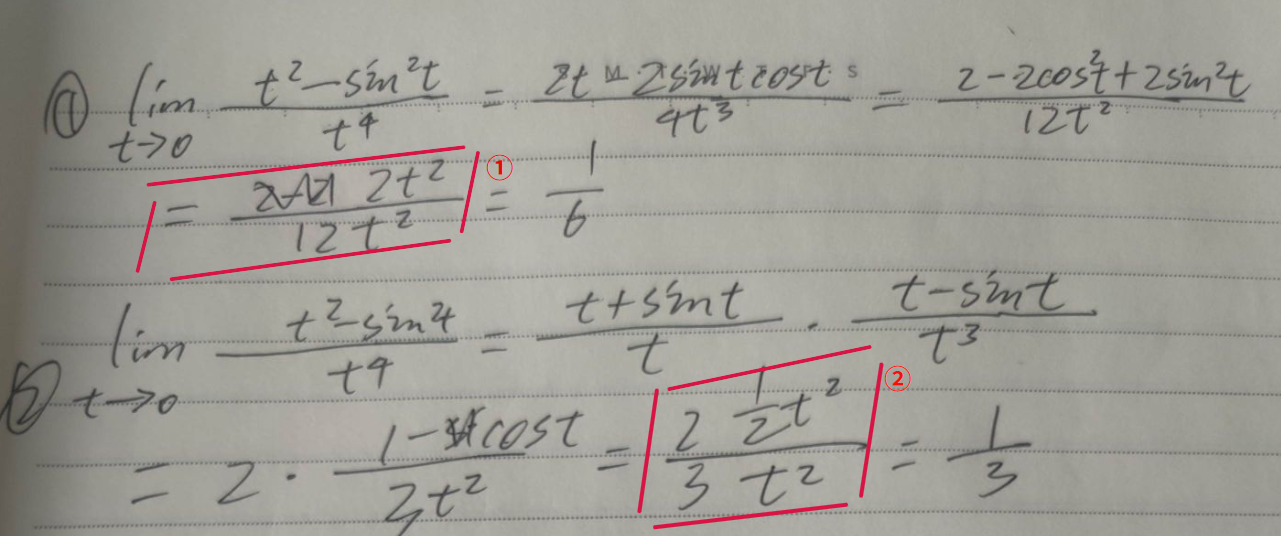 ① lim t→0 (t²-sin²t)/t⁴ = (2t-2sint cost)/4t³ = (2-2cos²t+2sin²t)/12t²
= 2t²/12t² ① = 1/6
② lim t→0 (t²-sin²t)/t⁴ = (t+sint)/t · (t-sint)/t³
= 2 · (1-cost)/3t² = (2 1/2 t²)/(3 t²) ② = 1/3